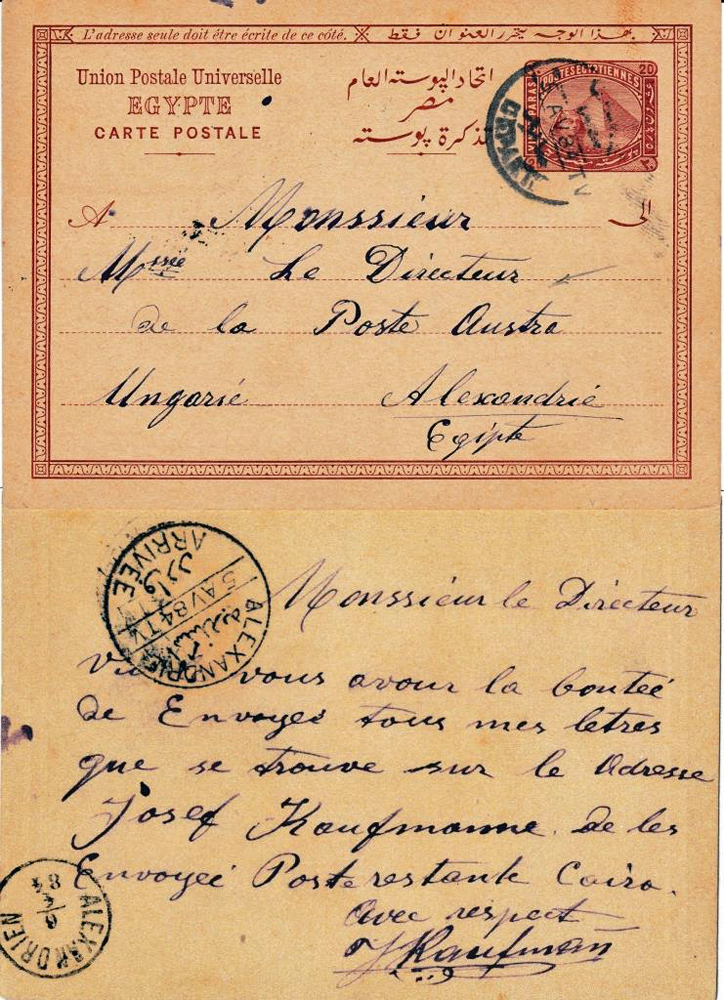 L'adresse seule doit être écrite de ce côté. بهذا الوجه يتحرر العنوان فقط
Union Postale Universelle
EGYPTE
CARTE POSTALE
اتحاد البوسته العام
مصر
تذكرة بوسته
20
POSTES EGYPTIENNES
PARAS
AV 84 TV
A Monssieur الى
Mssée Le Directeur
de la Poste Austra
Ungarié Alexandrié
Egipte
ALEXANDRIE
ARRIVÉE
5 AV 84 TV
وارد
Monssieur le Directeur
vous avour la boutéé
de Envoyes tous mes letres
que se trouve sur le Adresse
Josef Kaufmanne de les
Envoyeé Poste restante Cairo.
avec respect
J Kaufman
ALEXANDRIEN
6/4
84